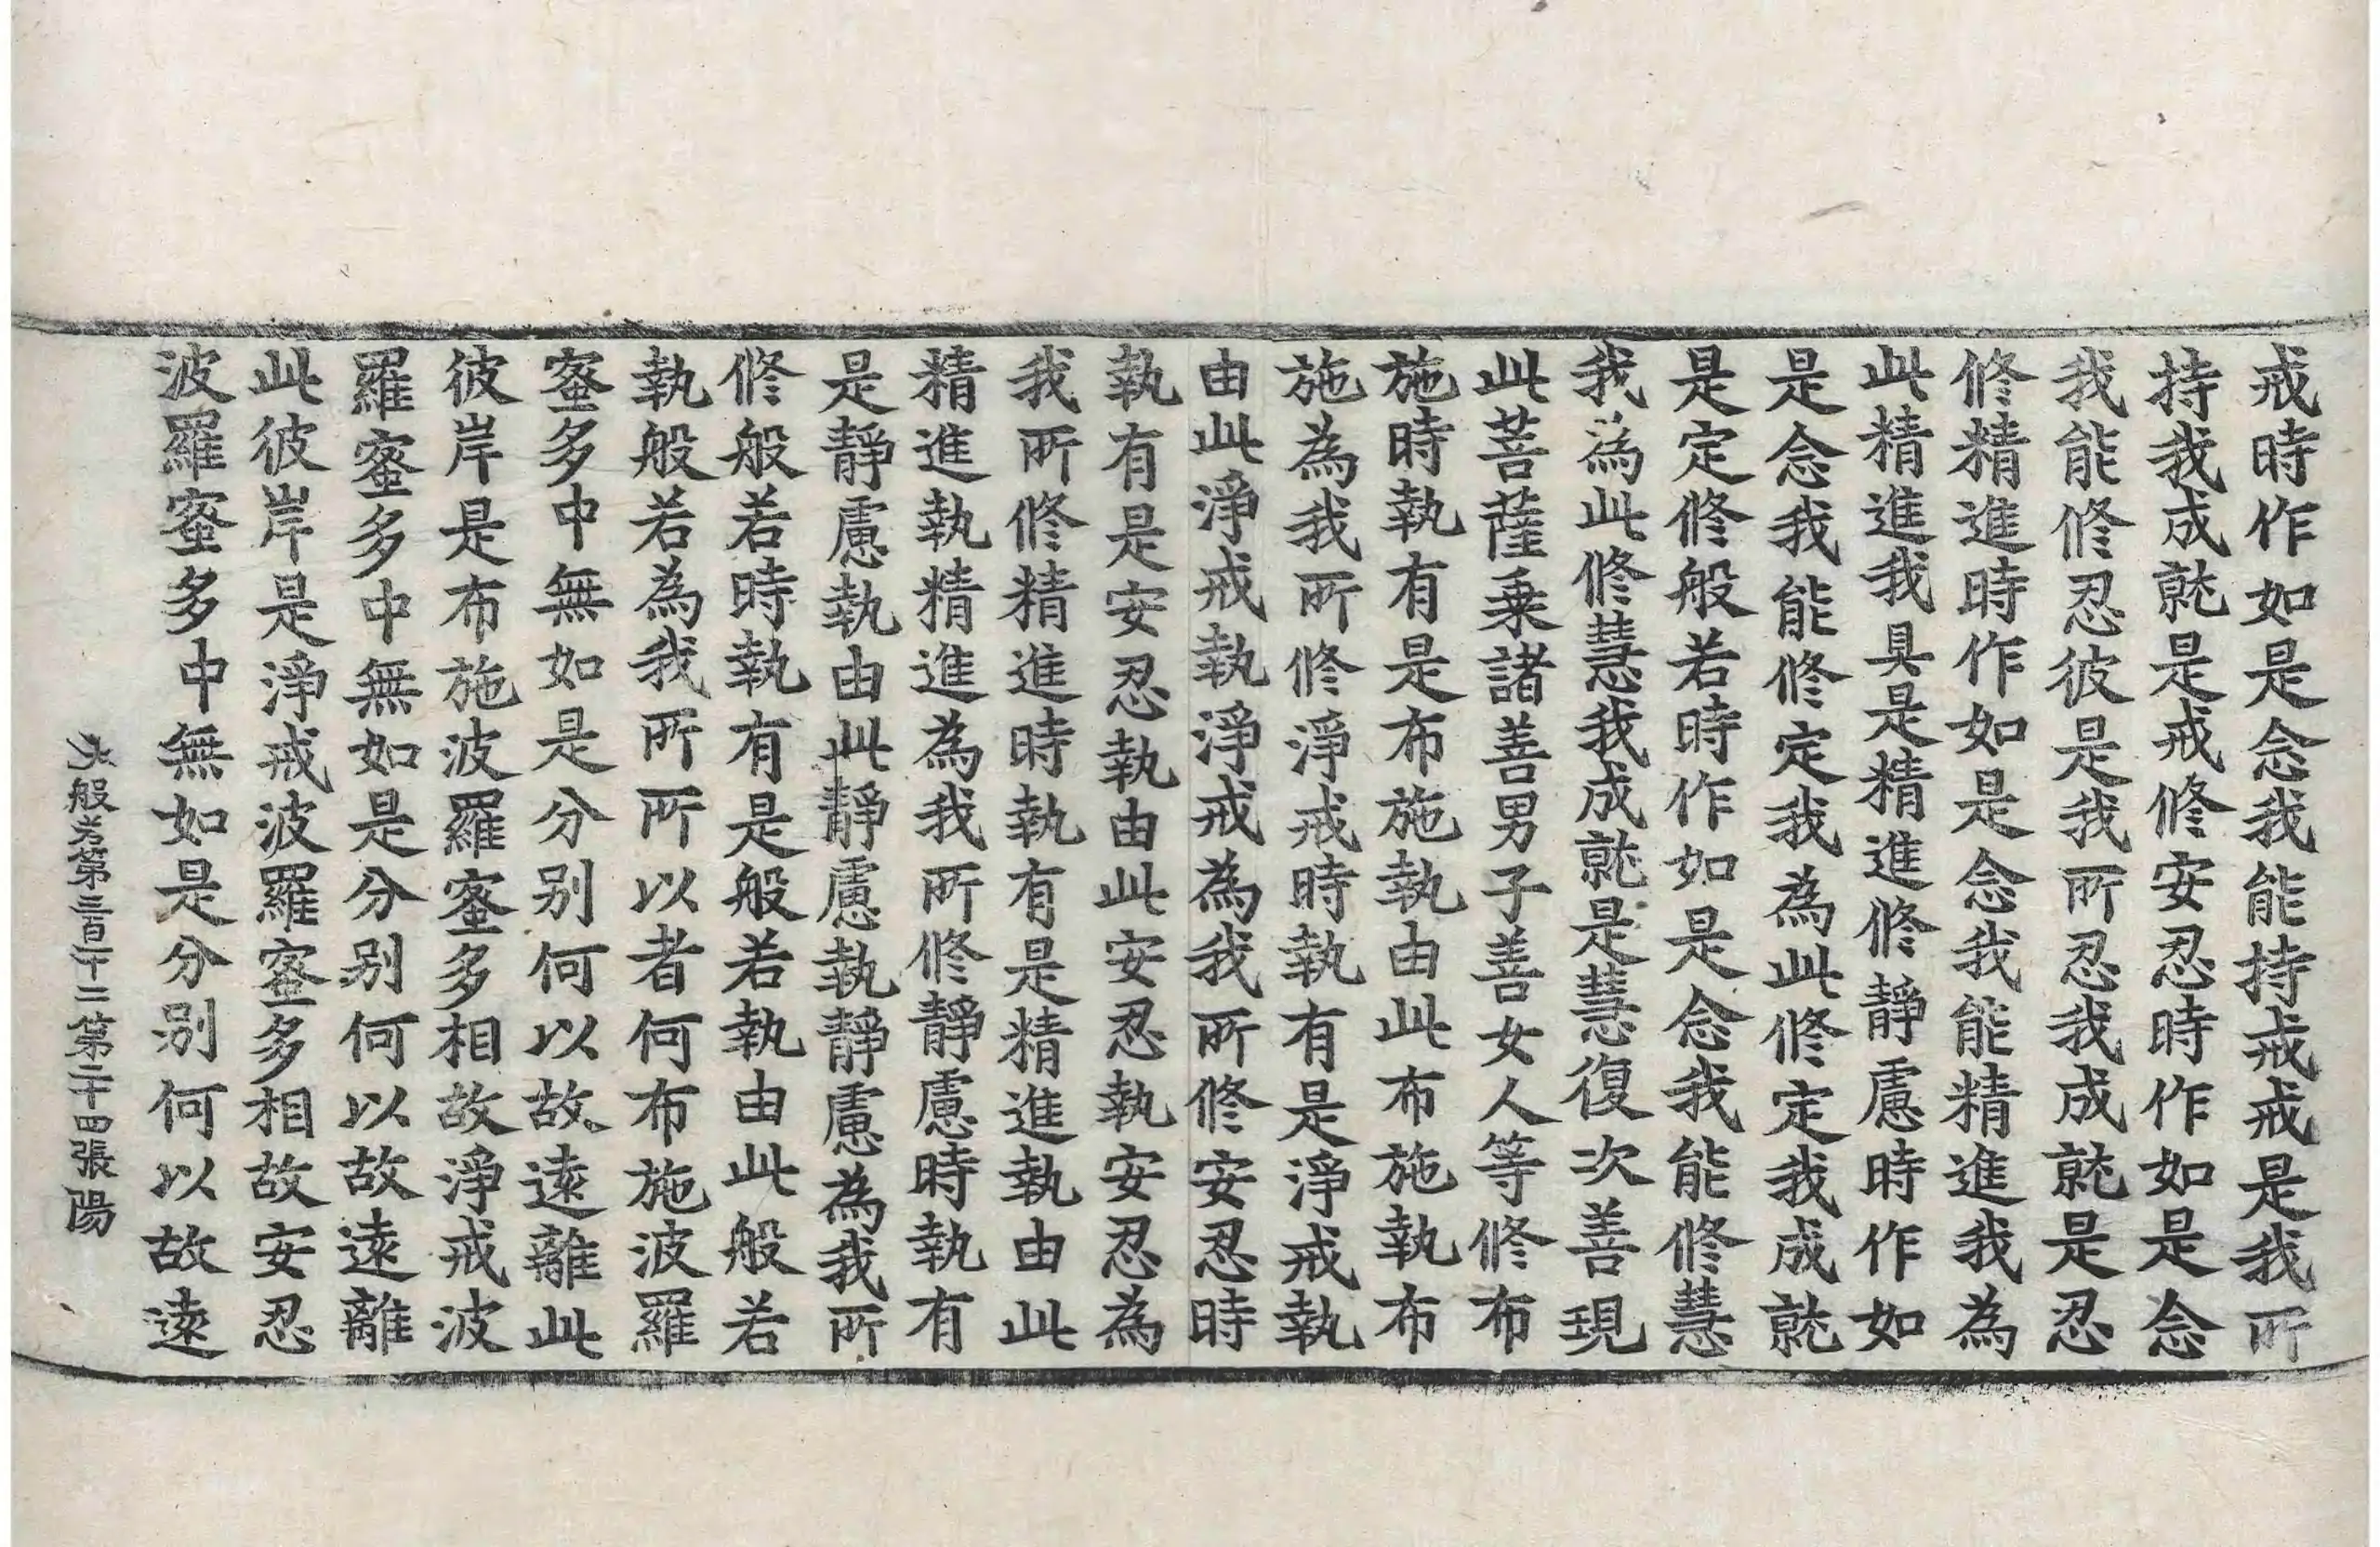 戒時作如是念我能持戒戒是我所
持我成就是戒修安忍時作如是念
我能修忍彼是我所忍我成就是忍
修精進時作如是念我能精進我為
此精進我具是精進修靜慮時作如
是念我能修定我為此修定我成就
是定修般若時作如是念我能修慧
我為此修慧我成就是慧復次善現
此菩薩乗諸善男子善女人等修布
施時執有是布施執由此布施執布
施為我所修淨戒時執有是淨戒執
由此淨戒執淨戒為我所修安忍時
執有是安忍執由此安忍執安忍為
我所修精進時執有是精進執由此
精進執精進為我所修靜慮時執有
是靜慮執由此靜慮執靜慮為我所
修般若時執有是般若執由此般若
執般若為我所所以者何布施波羅
蜜多中無如是分别何以故遠離此
彼岸是布施波羅蜜多相故淨戒波
羅蜜多中無如是分别何以故遠離
此彼岸是淨戒波羅蜜多相故安忍
波羅蜜多中無如是分别何以故遠
大般若第三百一十二第二十四張陽